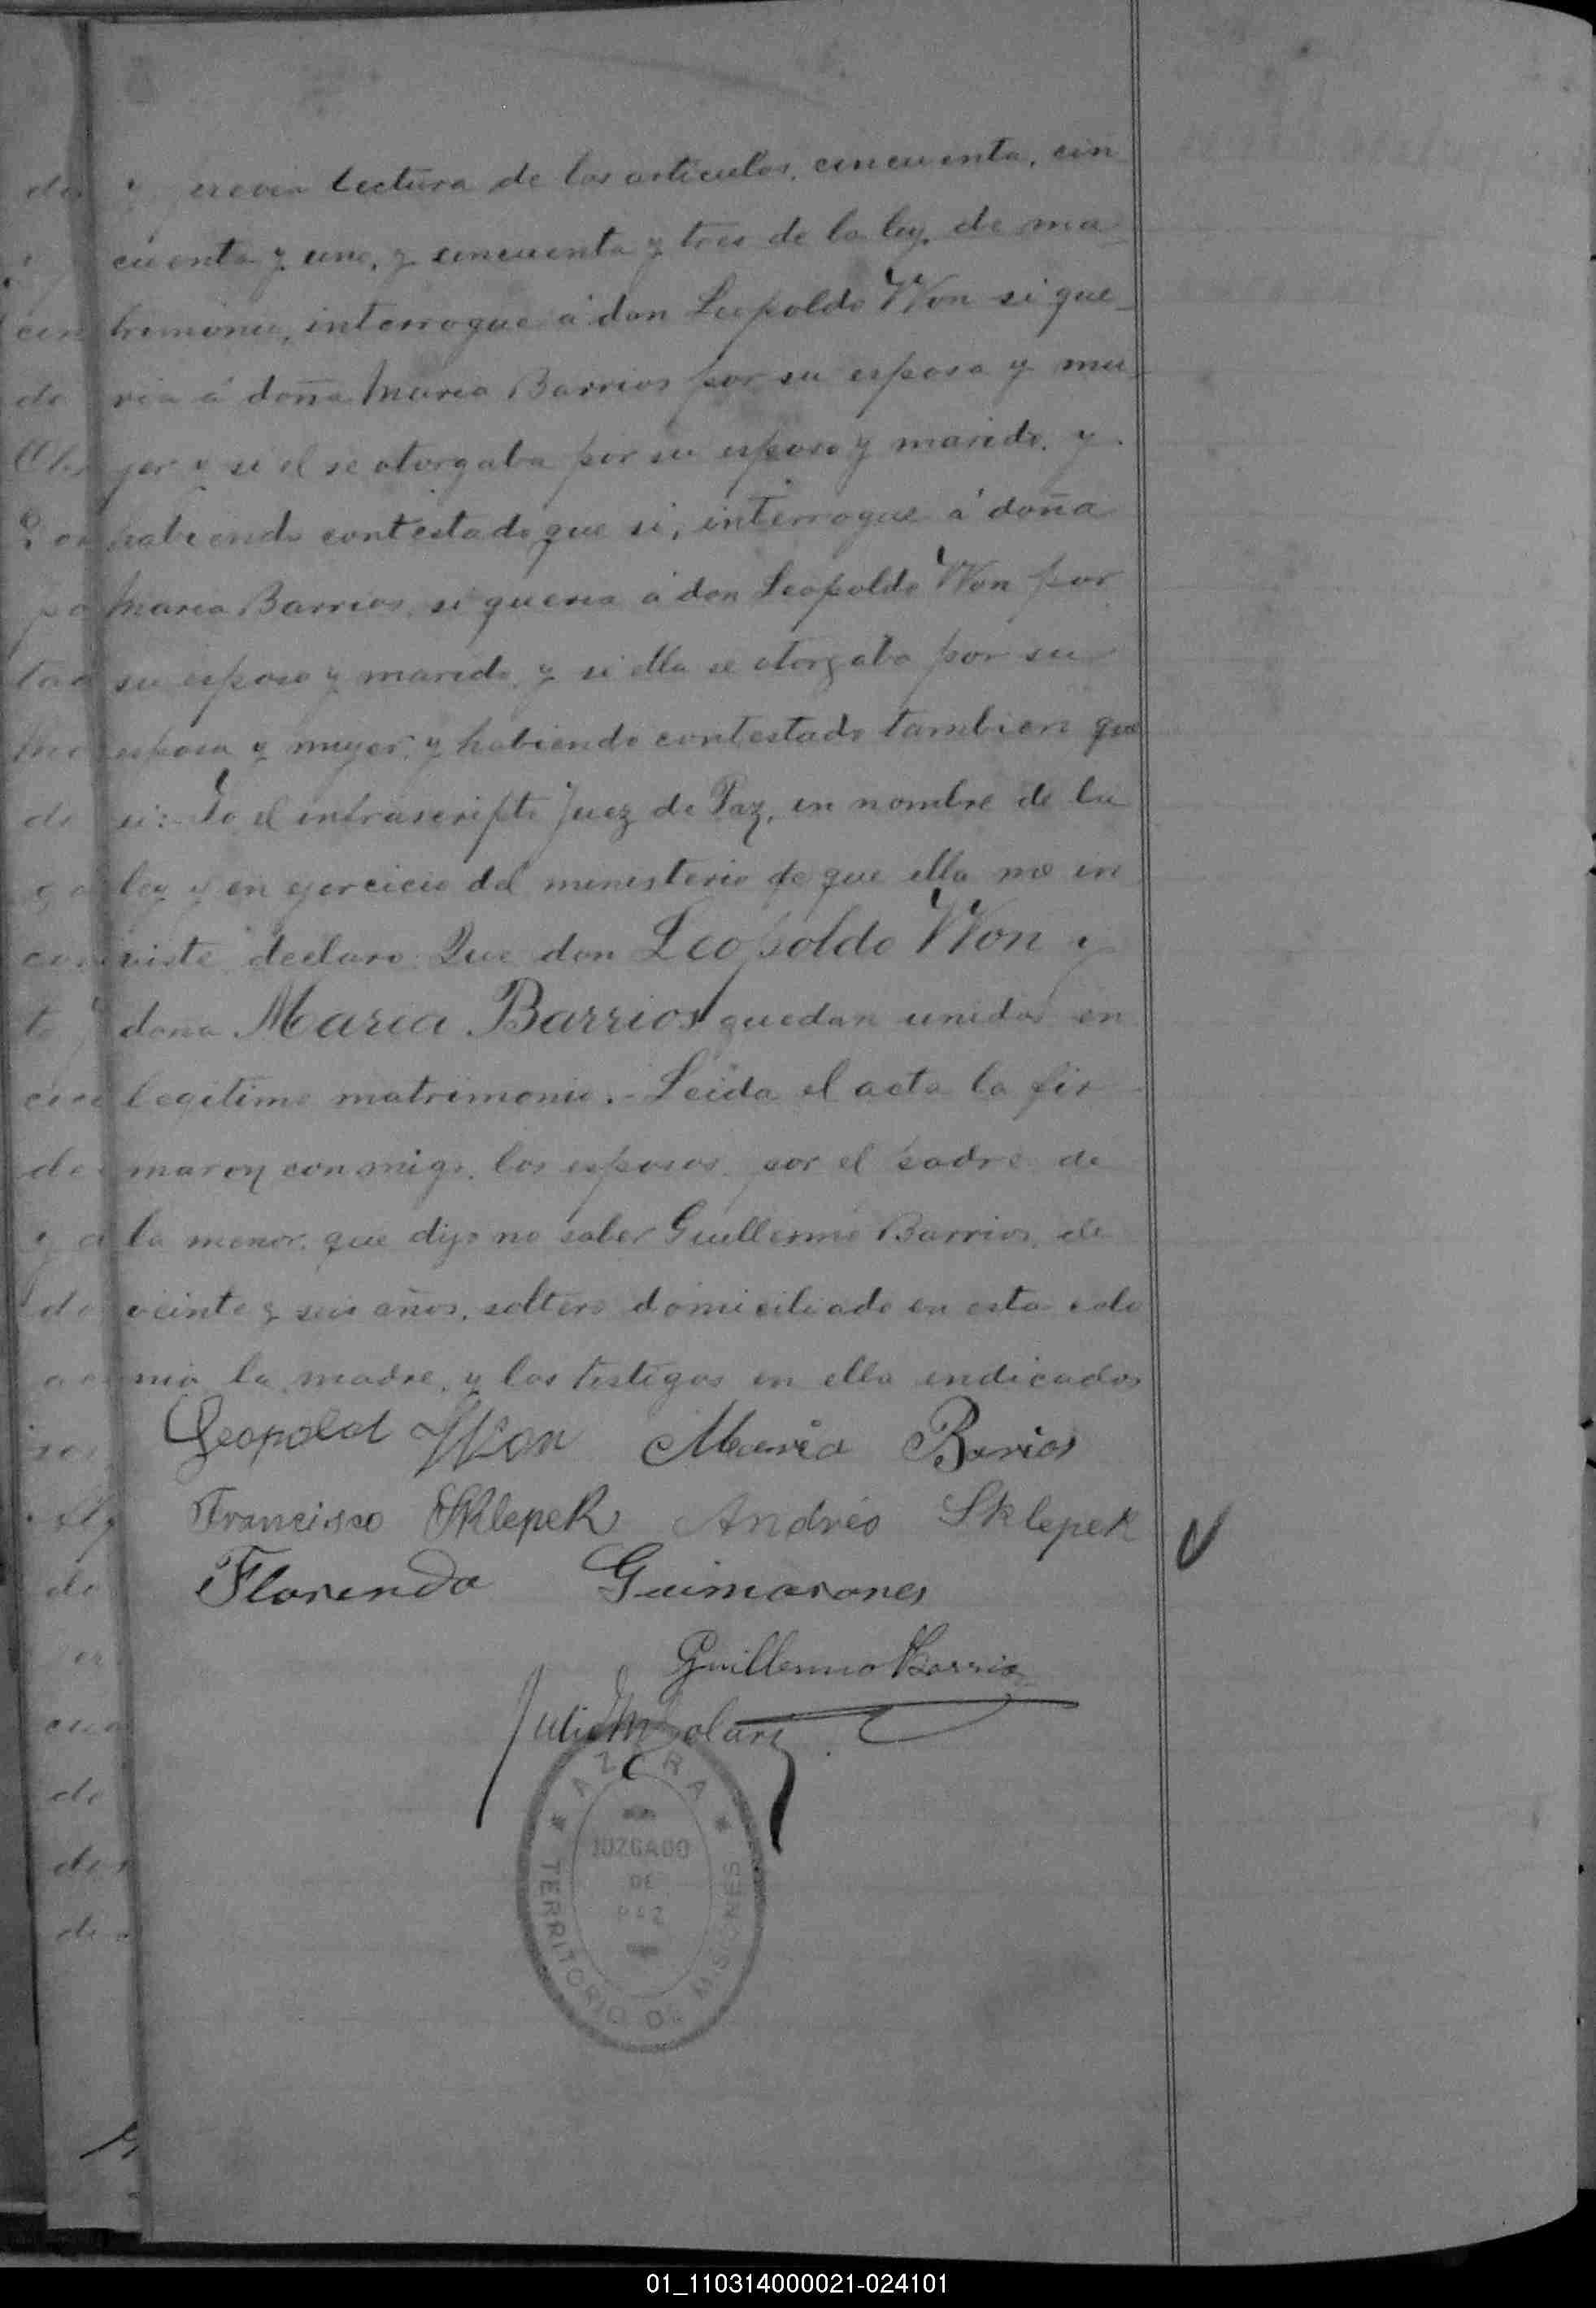 y previa lectura de los articulos, cincuenta, cin
cuenta y uno, y cincuenta y tres de la ley, de ma
trimonio, interrogue á don Leopoldo Won si que
ria á doña Maria Barrios por su esposa y mu
jer y si el se otorgaba por su esposo y marido, y
habiendo contestado que si, interrogue á doña
Maria Barrios, si queria á don Leopoldo Won por
su esposo y marido, y si ella se otorgaba por su
esposa y mujer, y habiendo contestado tambien que
si: Yo el infrascripto Juez de Paz, en nombre de la
ley y en ejercicio del ministerio de que ella me in
viste declaro: Que don Leopoldo Won y
doña Maria Barrios quedan unidos en
legitimo matrimonio.- Leida el acta la fir
maron conmigo, los esposos, por el padre de
la menor, que dijo no saber Guillermo Barrios, de
veinte y seis años, soltero domiciliado en esta colo
nia la madre, y los testigos en ella indicados
Leopold Won Maria Barios
Francisco Sklepek Andrés Sklepek
Florendo Guimaranes
Guillermo Barrios
Julio M Solari
AZARA
JUZGADO
DE
PAZ
TERRITORIO DE MISIONES
01_110314000021-024101